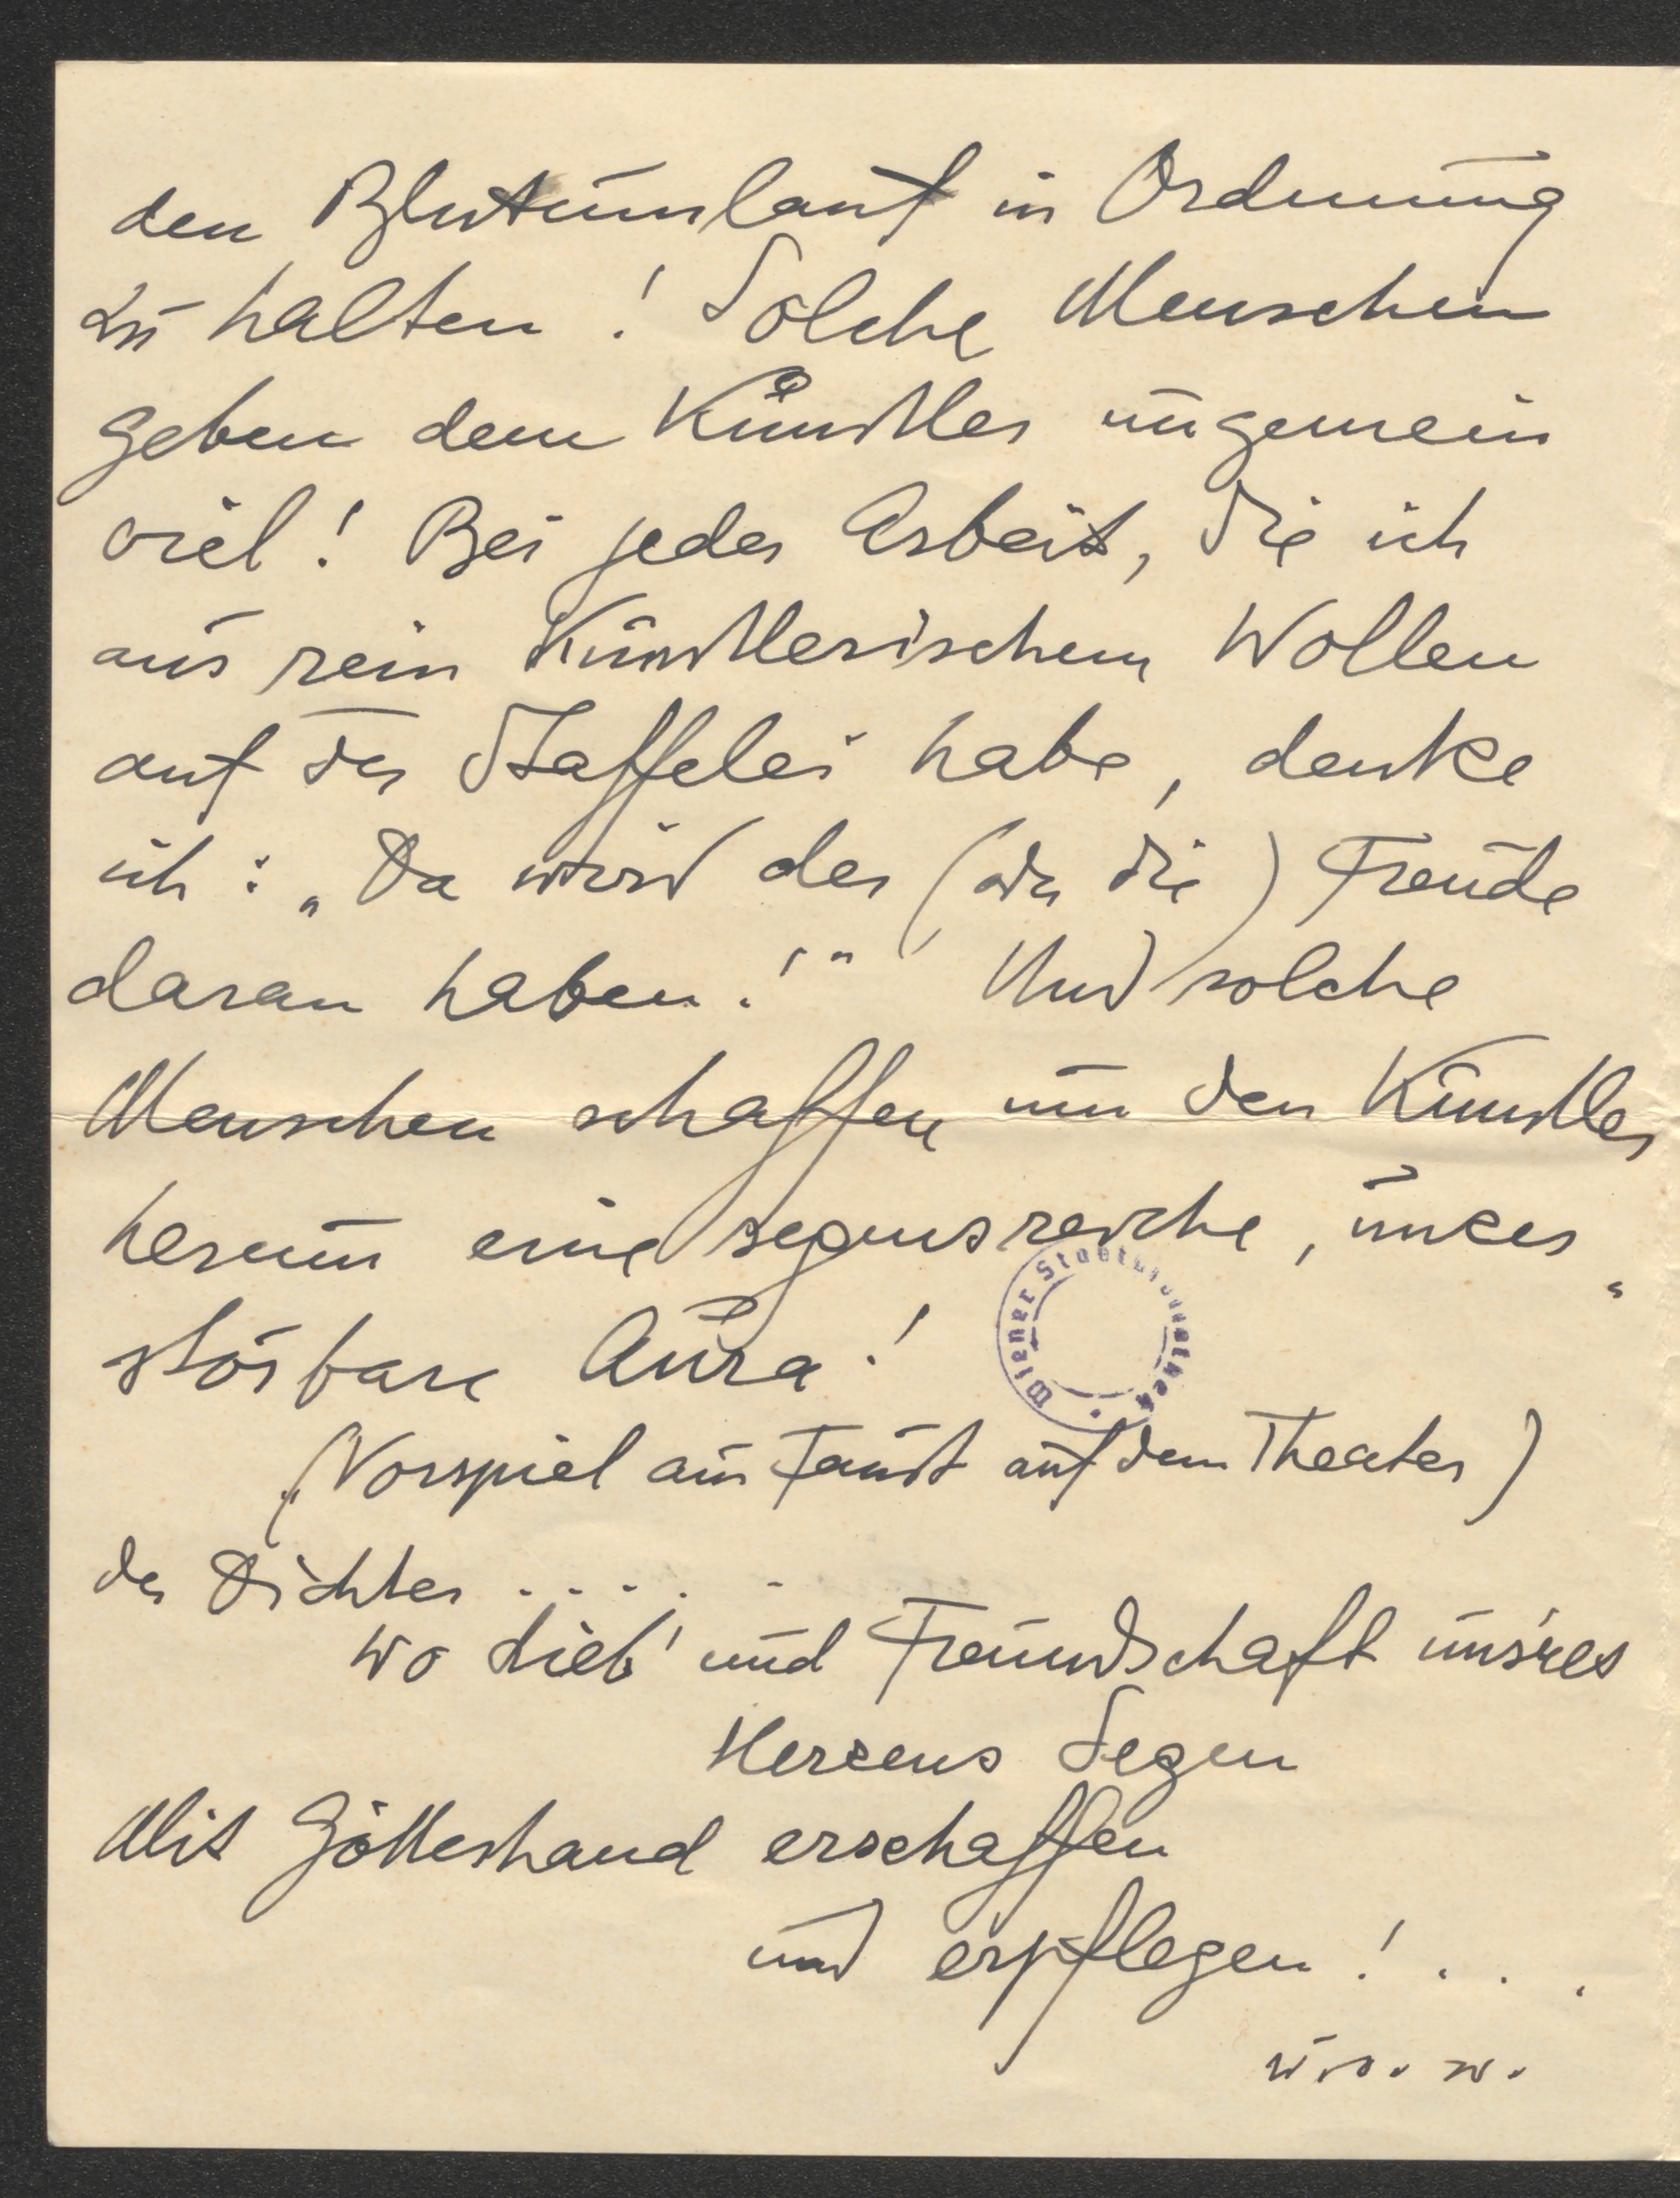 den Blutumlauf in Ordnung
zu halten! Solche Menschen
geben dem Künstler ungemein
viel! Bei jeder Arbeit, die ich
aus rein künstlerischem Wollen
auf der Staffelei habe, denke
ich: „Da wird der (oder die) Freude
daran haben!" Und solche
Menschen schaffen um den Künstler
herum eine segensreiche, unzer„
störbare Aura!
(Vorspiel aus Faust auf dem Theater)
der Dichter .....
wo Lieb' und Freundschaft uns'res
Herzens Segen
Mit Götteshand erschaffen
und erpflegen! . . .
u. s. w.
Wiener Stadtbibliothek